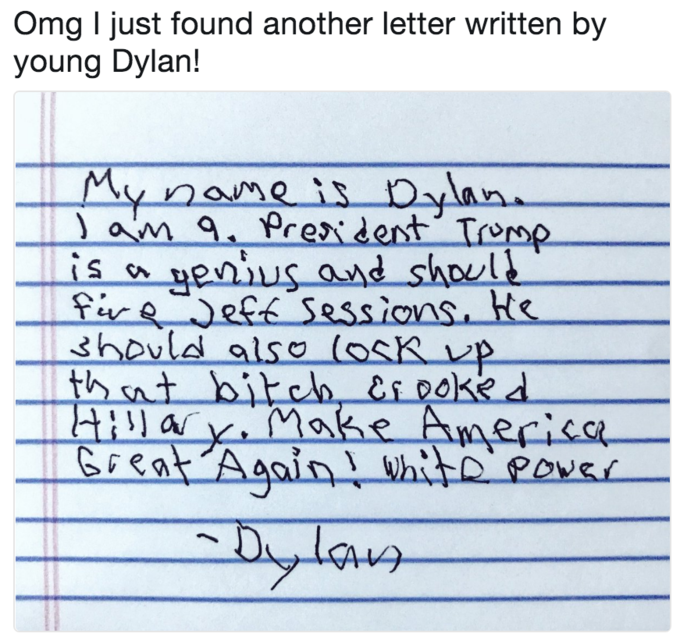 Omg I just found another letter written by
young Dylan!
My name is Dylan.
I am 9. President Trump
is a genius and should
fire Jeff Sessions. He
should also lock up
that bitch, Crooked
Hillary. Make America
Great Again! White Power
-Dylan